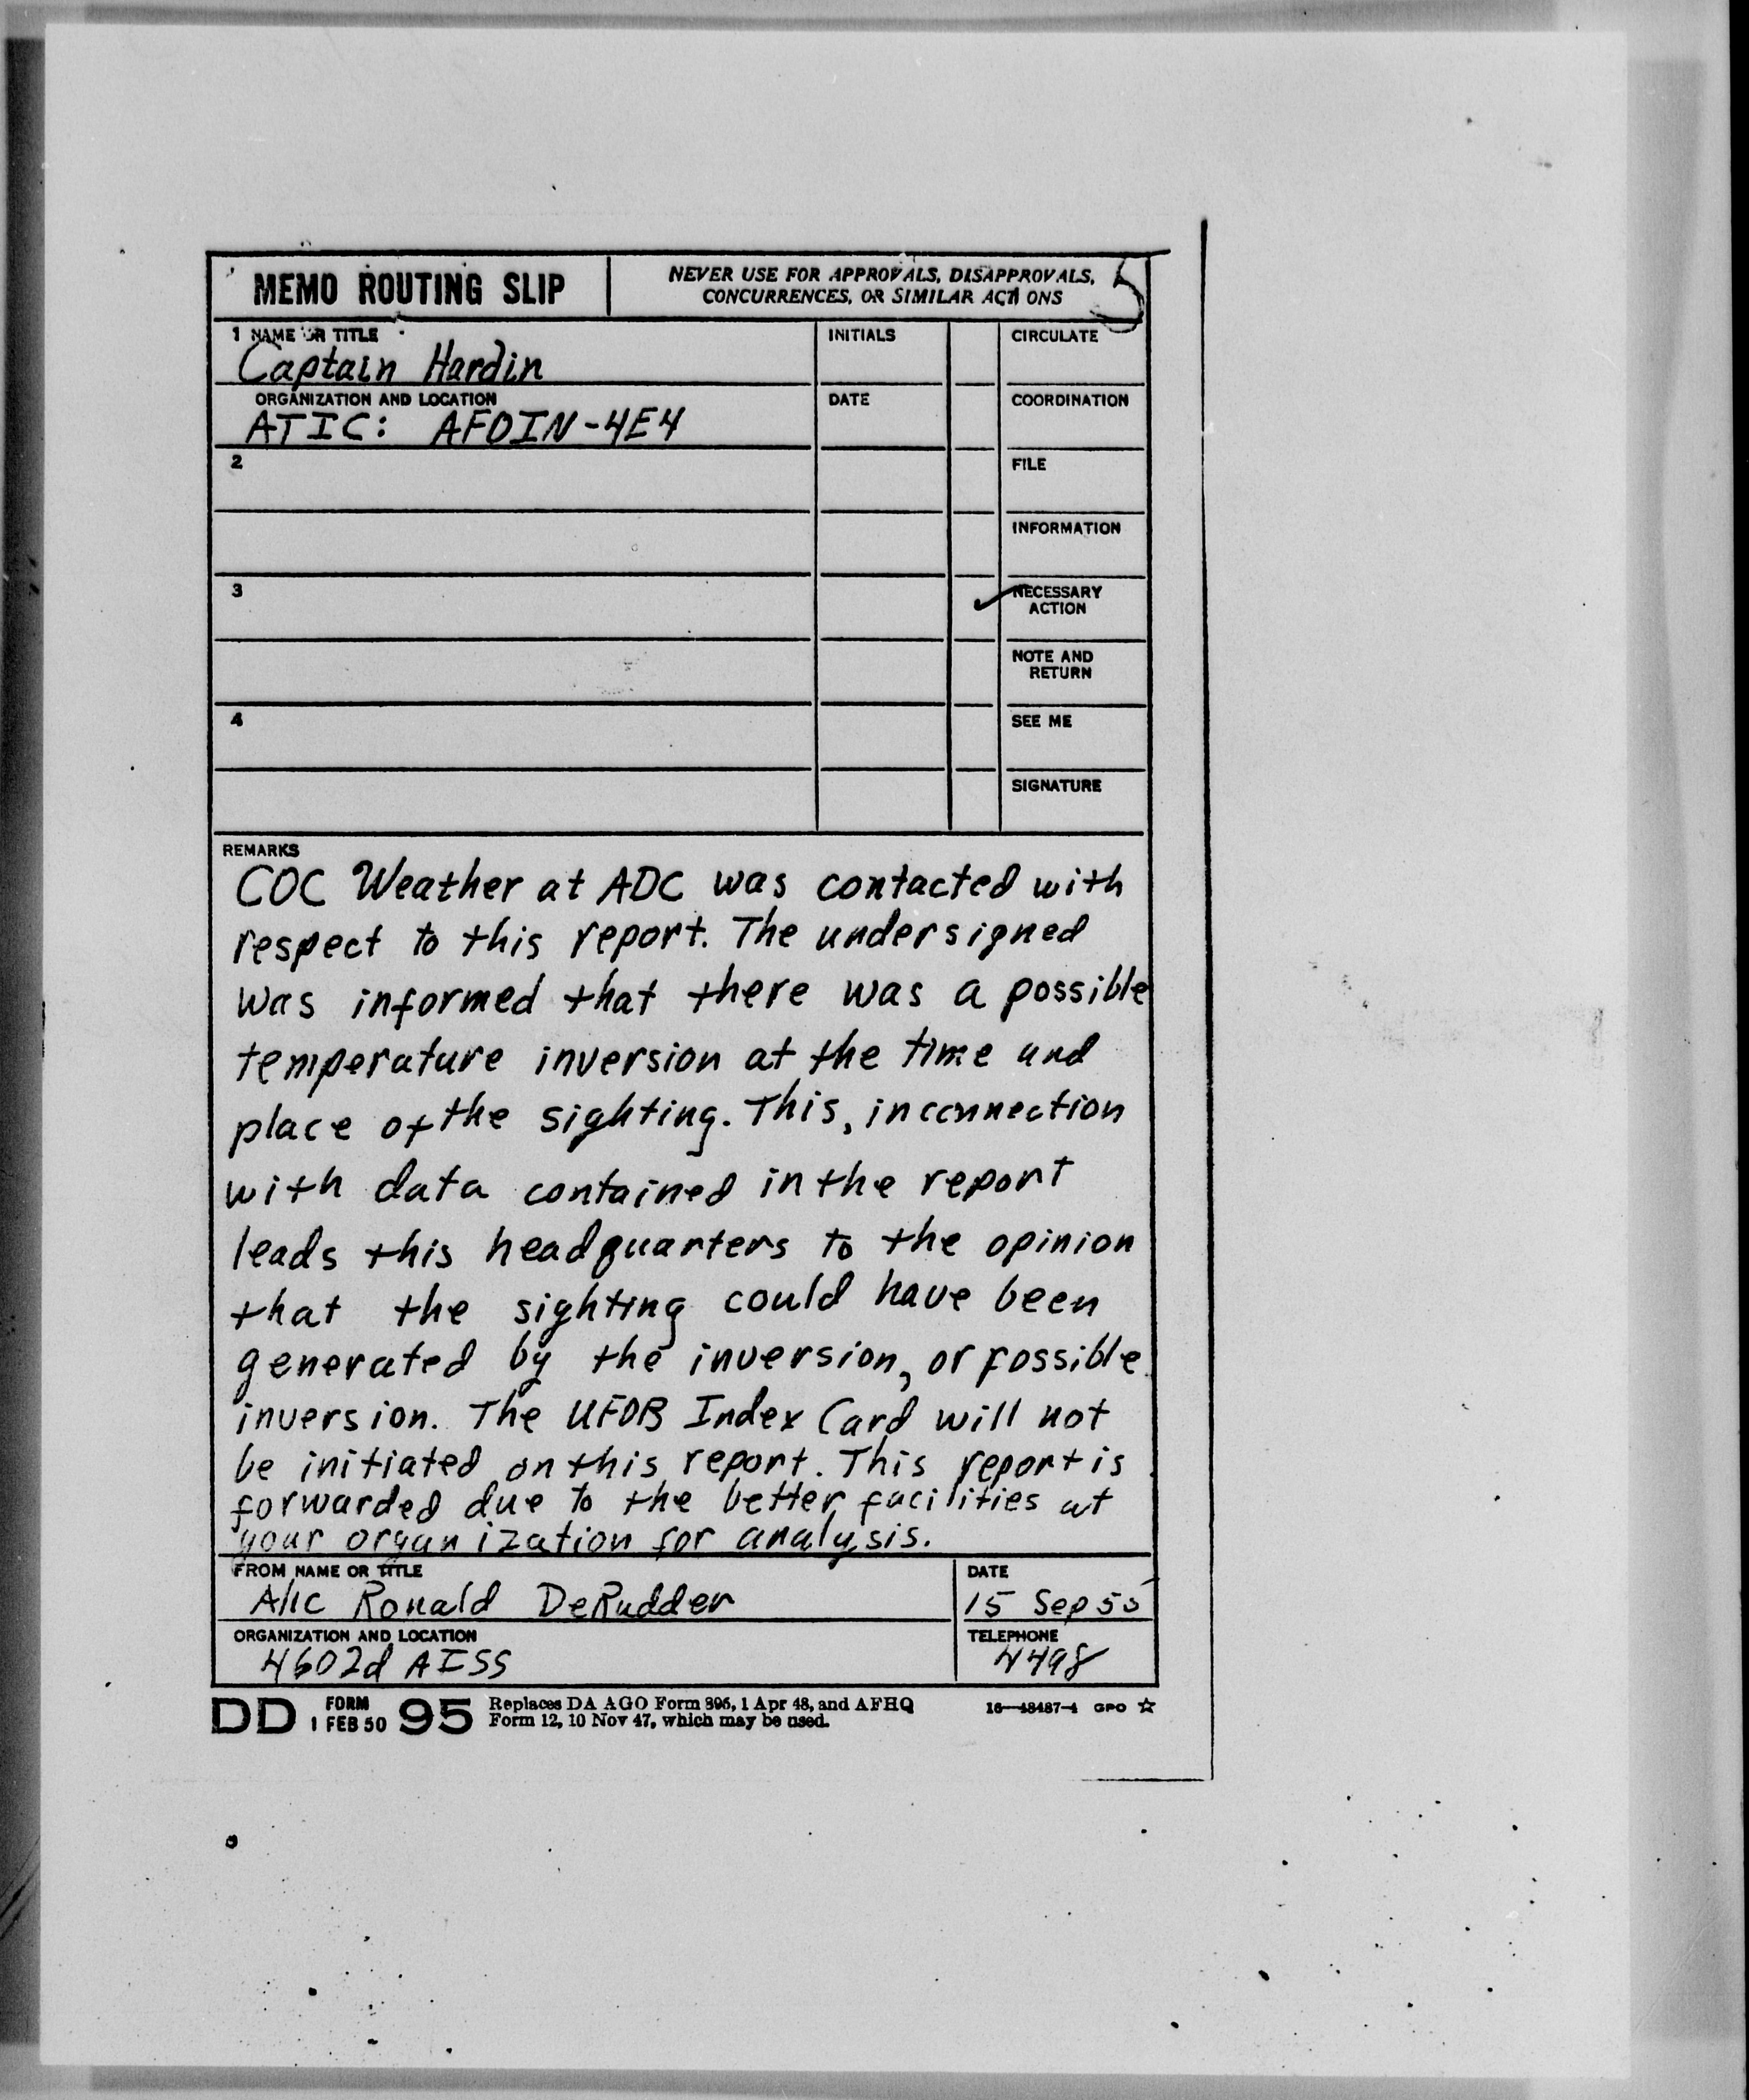 MEMO ROUTING SLIP
NEVER USE FOR APPROVALS, DISAPPROVALS,
CONCURRENCES, OR SIMILAR ACTIONS
5
1 NAME OR TITLE
Captain Hardin
INITIALS
CIRCULATE
ORGANIZATION AND LOCATION
ATIC: AFOIN-4E4
DATE
COORDINATION
2
FILE
INFORMATION
3
✓ NECESSARY
ACTION
NOTE AND
RETURN
4
SEE ME
SIGNATURE
REMARKS
COC Weather at ADC was contacted with
respect to this report. The undersigned
was informed that there was a possible
temperature inversion at the time and
place of the sighting. This, in connection
with data contained in the report
leads this headquarters to the opinion
that the sighting could have been
generated by the inversion, or possible
inversion. The UFOB Index Card will not
be initiated on this report. This report is
forwarded due to the better facilities at
your organization for analysis.
FROM NAME OR TITLE
A/1c Ronald DeRudder
DATE
15 Sep 55
ORGANIZATION AND LOCATION
4602d AISS
TELEPHONE
4498
DD FORM 1 FEB 50 95
Replaces DA AGO Form 895, 1 Apr 48, and AFHQ
Form 12, 10 Nov 47, which may be used.
16—48487-4 GPO ☆